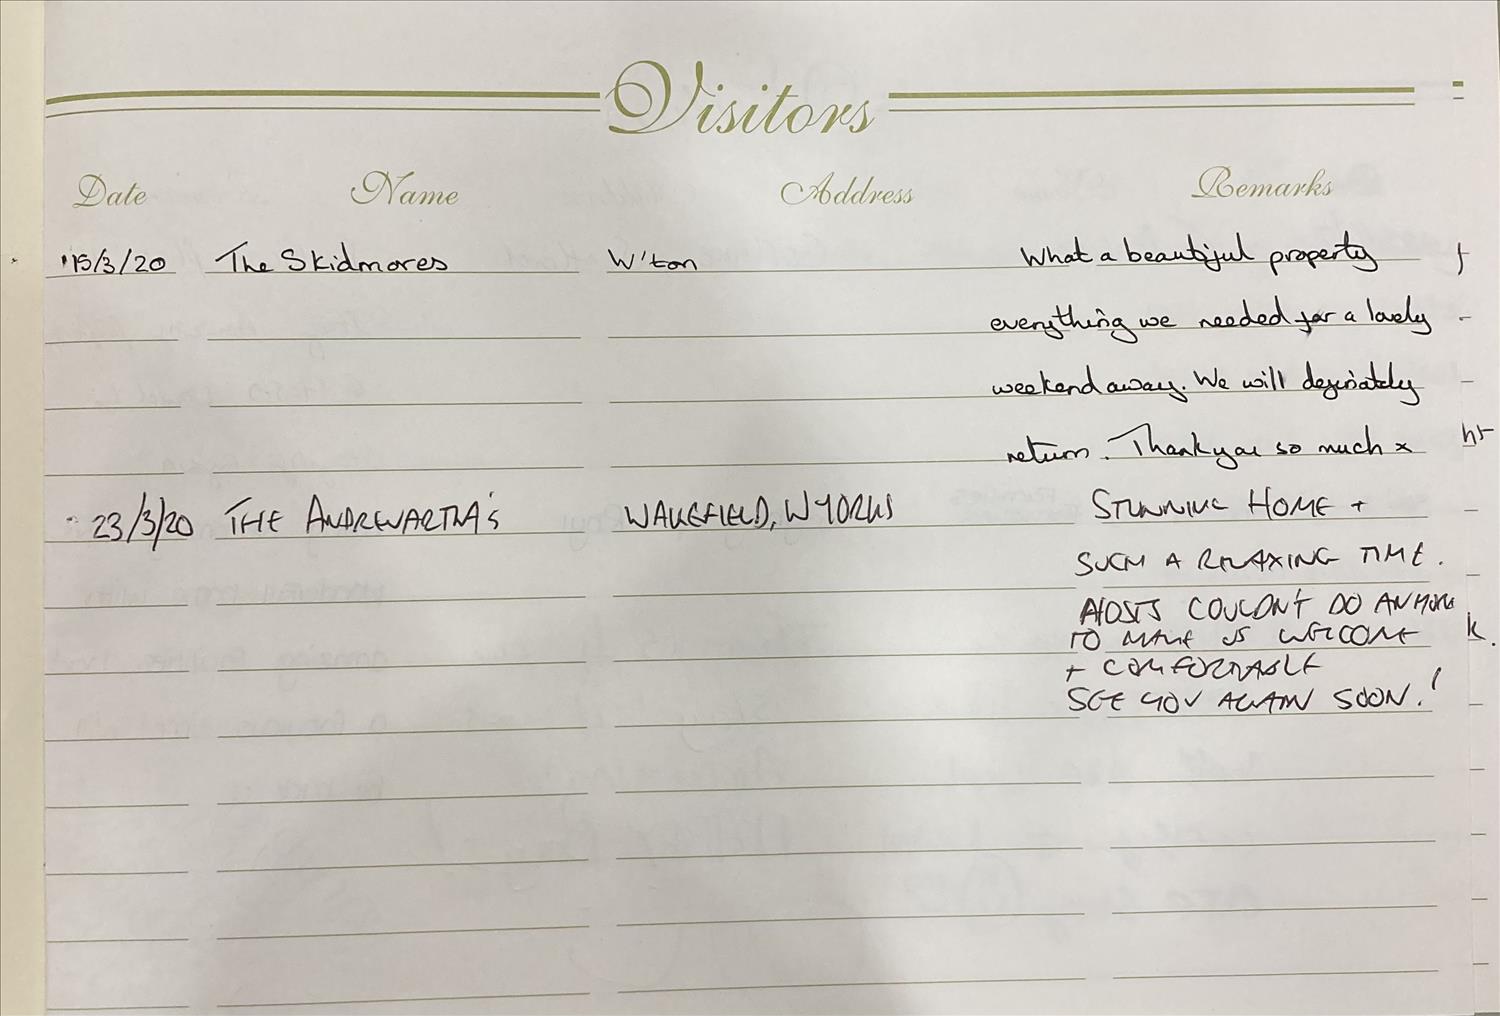 Visitors
Date Name Address Remarks
15/3/20 The Skidmores W'ton What a beautiful property
everything we needed for a lovely
weekend away. We will definately
return. Thank you so much x
23/3/20 THE ANDREWARTHA'S WAKEFIELD, W YORKS STUNNING HOME +
SUCH A RELAXING TIME.
HOSTS COULDN'T DO ANYMORE
TO MAKE US WELCOME
+ COMFORTABLE
SEE YOU AGAIN SOON!